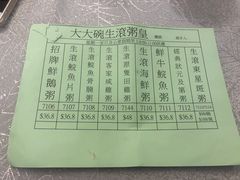 大大碗生滾粥皇
招牌鮮鵝粥
7106
$36.8
生滾鯇魚片粥
7107
$36.8
生滾鯇魚骨腩粥
7108
$36.8
生滾客家咸雞粥
7109
$36.8
生滾原隻田雞粥
7144
$48
生滾海鮮粥
7110
$36.8
鮮牛鯇魚粥
7111
$36.8
經典狀元及第粥
7112
$36.8
生滾東星斑粥